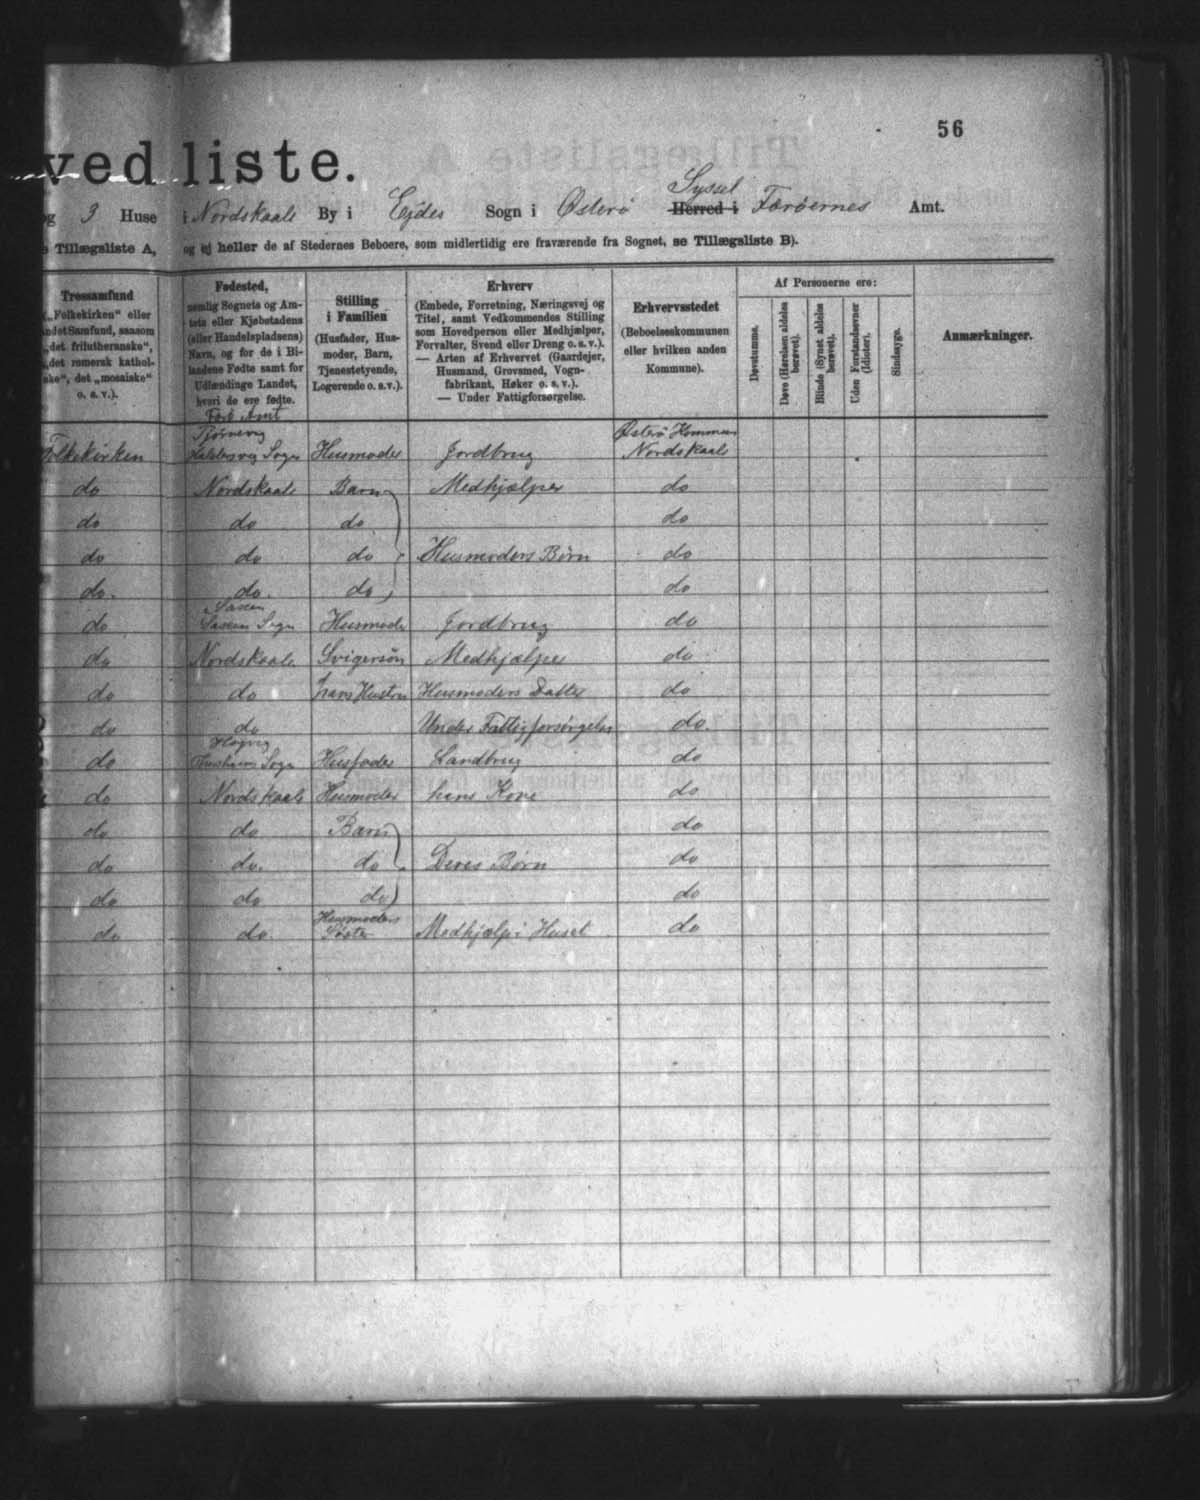 56
ved liste.
og 3 Huse i Nordskaale By i Ejdes Sogn i Østerø Syssel Herred i Færøernes Amt.
e Tillægsliste A, og ej heller de af Stedernes Beboere, som midlertidig ere fraværende fra Sognet, se Tillægsliste B).
Trossamfund
(„Folkekirken“ eller
andet Samfund, saasom
„det frilutheranske“,
„det romersk kathol-
ske“, det „mosaiske“
o. s. v.).
Fødested,
nemlig Sognets og Am-
tets eller Kjøbstadens
(eller Handelspladsens)
Navn, og for de i Bi-
landene Fødte samt for
Udlændinge Landet,
hvori de ere fødte.
Stilling
i Familien
(Husfader, Hus-
moder, Barn,
Tjenestetyende,
Logerende o. s. v.).
Erhverv
(Embede, Forretning, Næringsvej og
Titel, samt Vedkommendes Stilling
som Hovedperson eller Medhjælper,
Forvalter, Svend eller Dreng o. s. v.).
— Arten af Erhvervet (Gaardejer,
Husmand, Grovsmed, Vogn-
fabrikant, Høker o. s. v.).
— Under Fattigforsørgelse.
Erhvervsstedet
(Beboelseskommunen
eller hvilken anden
Kommune).
Af Personerne ere:
Døvstumme.
Døve (Hørelsen aldeles
berøvet).
Blinde (Synet aldeles
berøvet).
Uden Forstandsevner
(Idioter).
Sindssyge.
Anmærkninger.
Amt
Tjørnevig Østerø Kommune
Folkekirken Sogn Husmoder Jordbrug Nordskaale
do Nordskaale Barn Medhjælper do
do do do do
do do do Husmoders Børn do
do. do. do do
Saxen
do Saxen Sogn Husmoder Jordbrug do
do Nordskaale Svigersøn Medhjælper do
do do hans Hustru Husmoders Datter do
do do Under Fattigforsørgelse do.
do Sogn Husfader Landbrug do
do Nordskaale Husmoder hans Kone do
do do Barn do
do do. do Deres Børn do
do do do do
do do. Husmoders Søster Medhjælp i Huset do